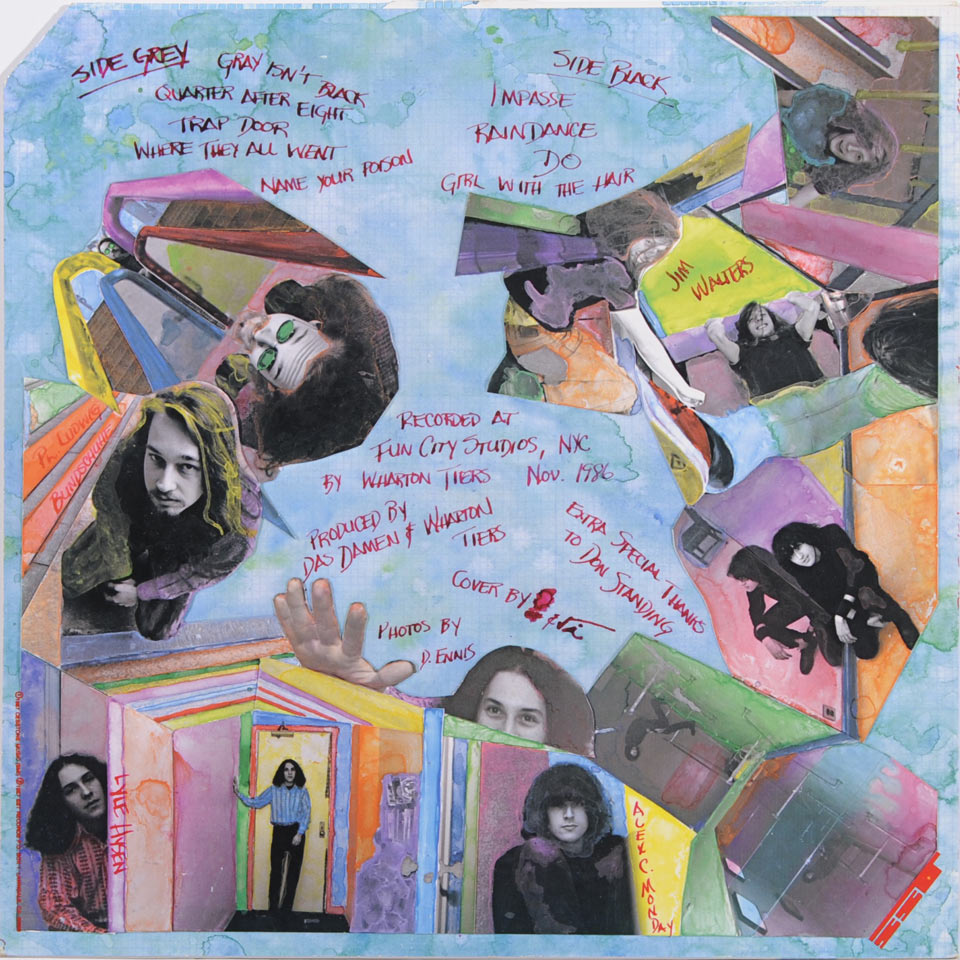 SIDE GREY
GRAY ISN'T BLACK
QUARTER AFTER EIGHT
TRAP DOOR
WHERE THEY ALL WENT
NAME YOUR POISON
SIDE BLACK
IMPASSE
RAINDANCE
DO
GIRL WITH THE HAIR
JIM
WALTERS
Ph. LUDWIG
BUNDSCHUHE
RECORDED AT
FUN CITY STUDIOS, NYC
BY WHARTON TIERS NOV. 1986
PRODUCED BY
DAS DAMEN & WHARTON
TIERS
EXTRA SPECIAL THANKS
TO DON STANDING
COVER BY
PHOTOS BY
D. ENNIS
LYLE HYSEN
ALEX C. MONDAY